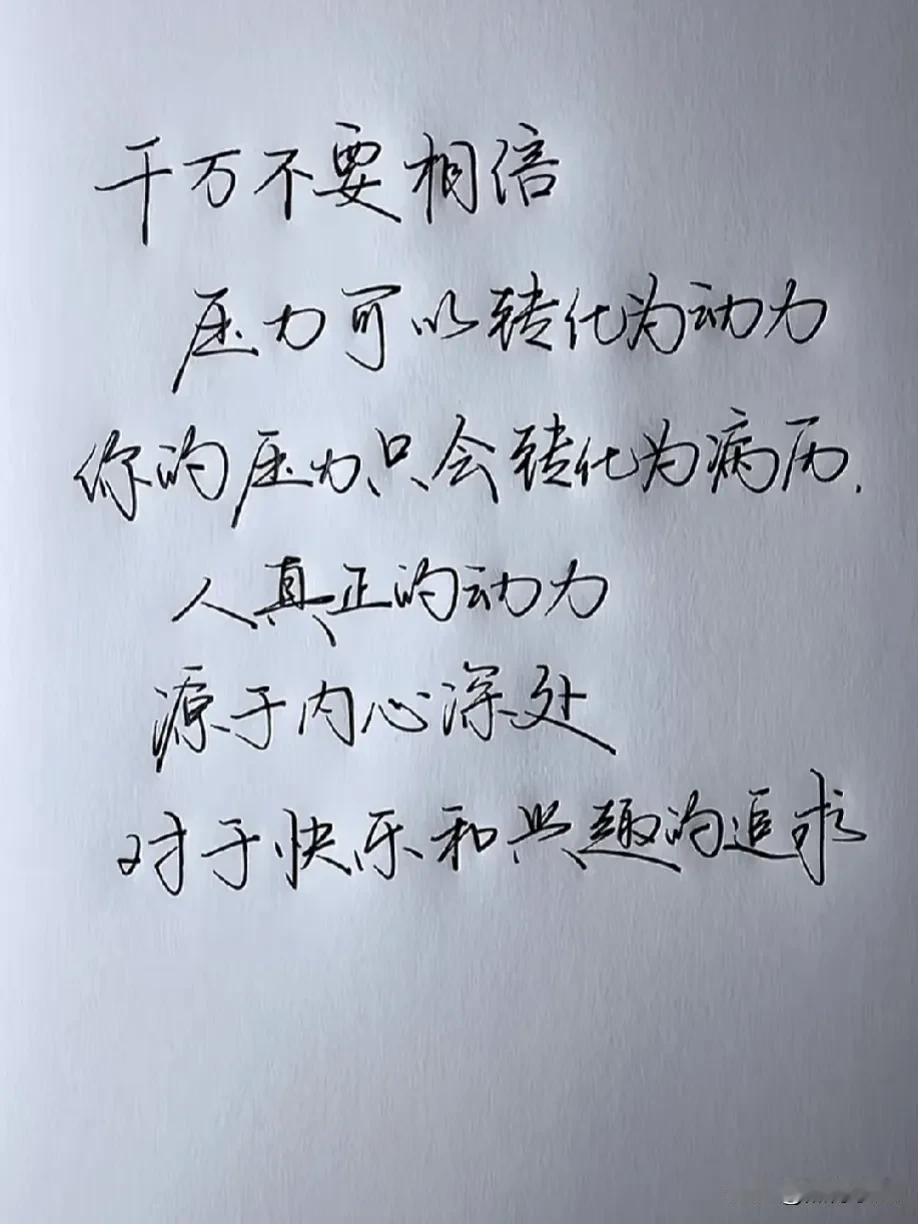 千万不要相信
压力可以转化为动力
你的压力只会转化为病历.
人真正的动力
源于内心深处
对于快乐和兴趣的追求